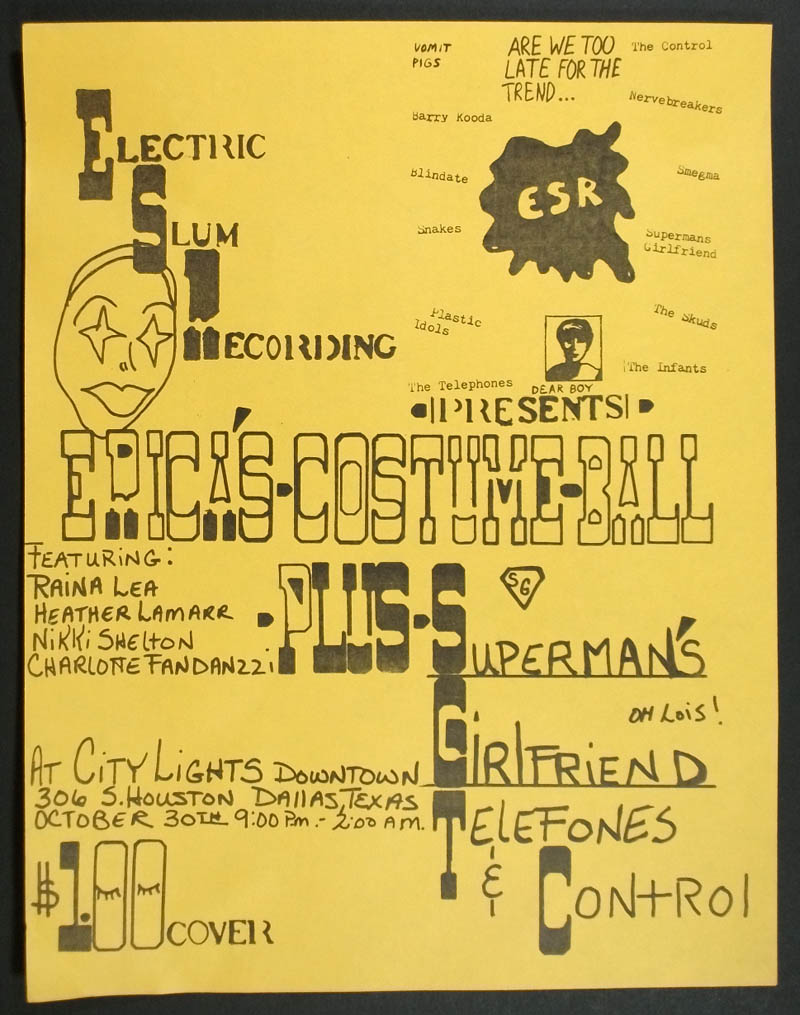 ELECTRIC
SLUM
RECORDING
VOMIT
PIGS
ARE WE TOO
LATE FOR THE
TREND...
The Control
Barry Kooda
Nervebreakers
Blindate
Smegma
ESR
Snakes
Supermans
Girlfriend
Plastic
Idols
The Skuds
The Telephones
The Infants
DEAR BOY
PRESENTS
ERICA'S-COSTUME-BALL
FEATURING:
RAINA LEA
HEATHER LAMARR
NIKKI SHELTON
CHARLOTTE FANDANZZI
PLUS-
SG
SUPERMAN'S
OH LOIS!
GIRLFRIEND
TELEFONES
& CONTROL
AT CITY LIGHTS DOWNTOWN
306 S. HOUSTON DALLAS, TEXAS
OCTOBER 30TH 9:00 PM.- 2:00 AM.
$1.00 COVER